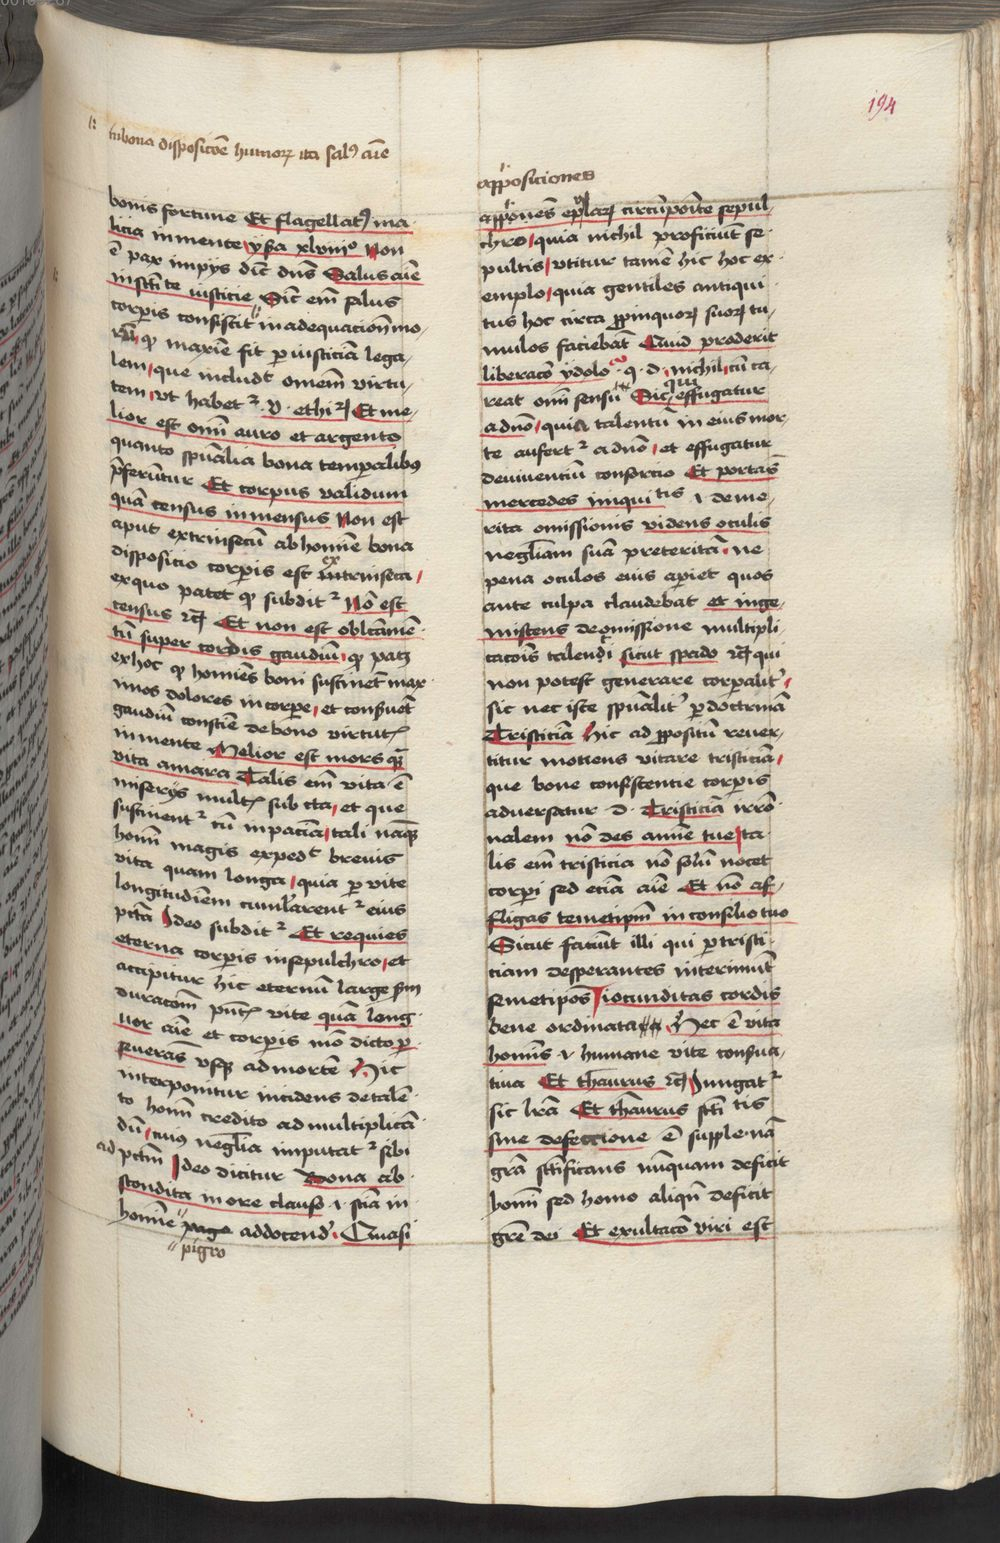 194
in bona disposicõe humorꝝ ita salꝰ aĩe
bonis fortune Et flagellatꝰ ma
licia in mente ysa xlviijº Non
ẽ pax impijs dic̃ dñs Salus aĩe
in sc̃itate iusticie Sic̃ em̃ salus
corporis consistit in adequacionẽ mo
rũ qꝫ maxĩe fit ꝑ iusticiã lega
lem que includit omnem virtu
tem vt habetᷣ v ethicꝝ Et me
lior est om̃i auro et argento
quanto sp̃ualia bona temporalibꝰ
p̃feruntur Et corpus validum
quã census inmensus Non est
aput extrinsecũ ab homĩe bona
disposicio corꝑis est intrinseca
ex quo patet qꝫ subditᷣ Nõ est
census rc̃ Et non est oblectamẽ
tũ super cordis gaudiũ qꝫ patꝫ
ex hoc qꝫ homĩes boni sustinẽt max
imos dolores in corpore et conseruãt
gaudiũ consciẽ de bono virtutꝭ
in mente Melior est mors qꝫ
vita amara Talis em̃ vita ẽ
miserijs multꝭ subiecta et que
sustinentᷣ cũ inpaciẽcia tali namqꝫ
homĩ magis expedit brevis
vita quam longa quia ꝑ vite
longitudinem cumularentᷣ eius
pctã Ideo subditᷣ Et requies
eterna corꝑis in sepulchro et
accipitur hic eternũ large scdm
duracõem pñtꝭ vite quã long
uor aĩe et corꝑis mõ dicto ꝑ
seuerãs vsqꝫ ad mortẽ Hic
interponitur incidens de talẽ
to homĩ credito ad multiplicã
dũ cuiꝰ negligẽcia imputatᷣ sibi
ad pctm̃ Ideo dicitur Bona ab
scondita in ore clauso .i. sciã in
homĩe pigro ad docendũ Quasi
apposiciones
apposiciones epularꝝ circũposite sepul
chro quia nichil proficiũt se
pultis vtitur tamẽ hic hoc ex
emplo quia gentiles antiqui
tus hoc circa propinquorꝝ suorꝝ tu
mulos faciebãt Quid proderit
libacõ ydolo q. d. nichil cũ ca
reat om̃i sensu Sic qui effugatur
a dño quia talentũ in eius mor
te aufertᷣ a dño et effugatur
de viuentiũ consorcio Et portãs
mercedes iniquitatis .i. deme
rita omissionis videns oculis
negligẽciam suã preteritã ne
pena oculos eius aperiet quos
ante culpa claudebat et inge
miscens de omissione multipli
cacõis talenti sicut spado rc̃ qui
non potest generare corporalitᷣ
sic nec iste sp̃ualitᷣ ꝑ doctrinã
Tristiciã Hic ad ꝓpositũ reuer
titur monens vitare tristiciã
que bone consistentie corꝑis
aduersatur d. Tristiciã irrõ
nalem nõ des anime tue ta
lis em̃ tristicia nõ solũ nocet
corpori sed eciã aĩe Et nõ af
fligas temetipm̃ in consilio tuo
Sicut faciũt illi qui ꝑ tristi
ciam desperantes interimũt
semetipos iocunditas cordis
bene ordinata Hec ẽ vita
homĩs .i. humane vite conserua
tiua Et thesaurus rc̃ Iungatᷣ
sic lrã Et thesaurus sc̃itatis
sine defectione ẽ supple nã
grã sc̃ificans nũquam deficit
homĩ sed homo aliqñ deficit
grẽ dei Et exultacõ viri est